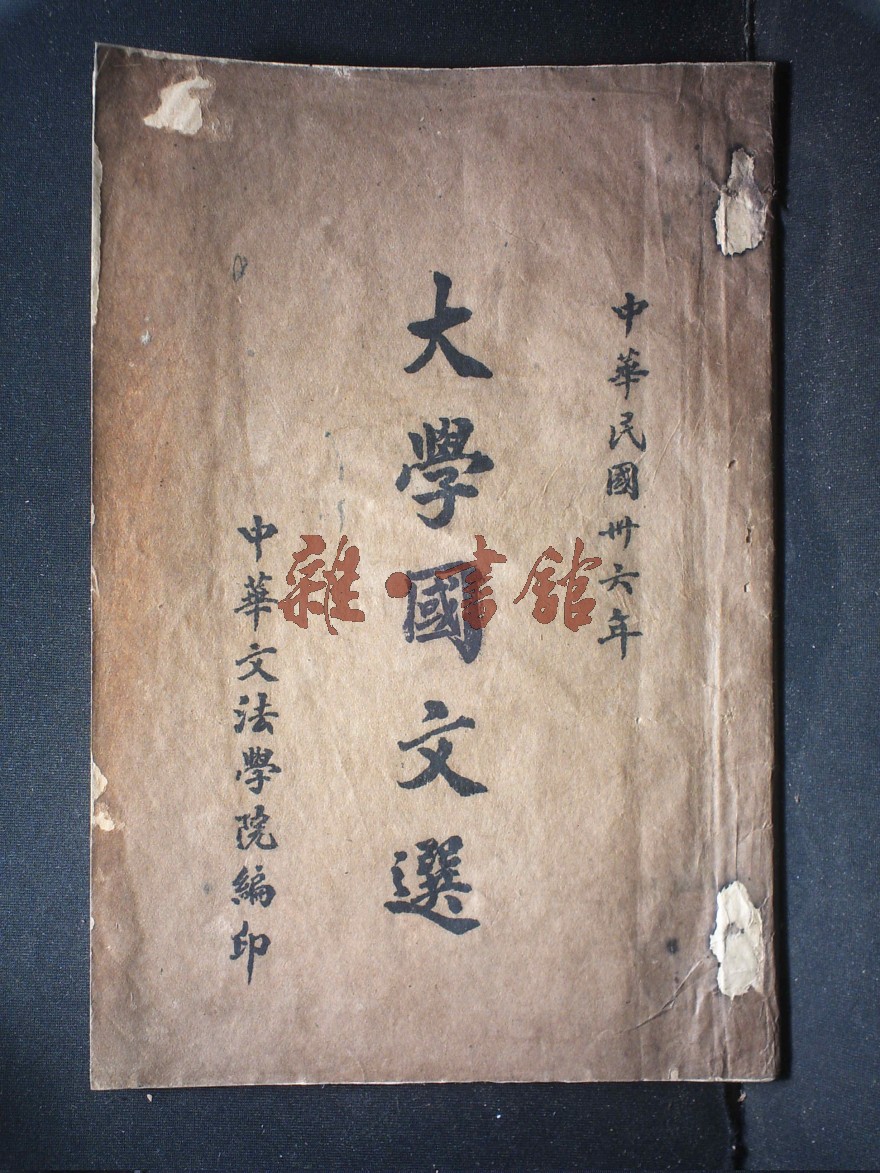 中華民國卅六年
大學國文選
中華文法學院編印
雜·書館